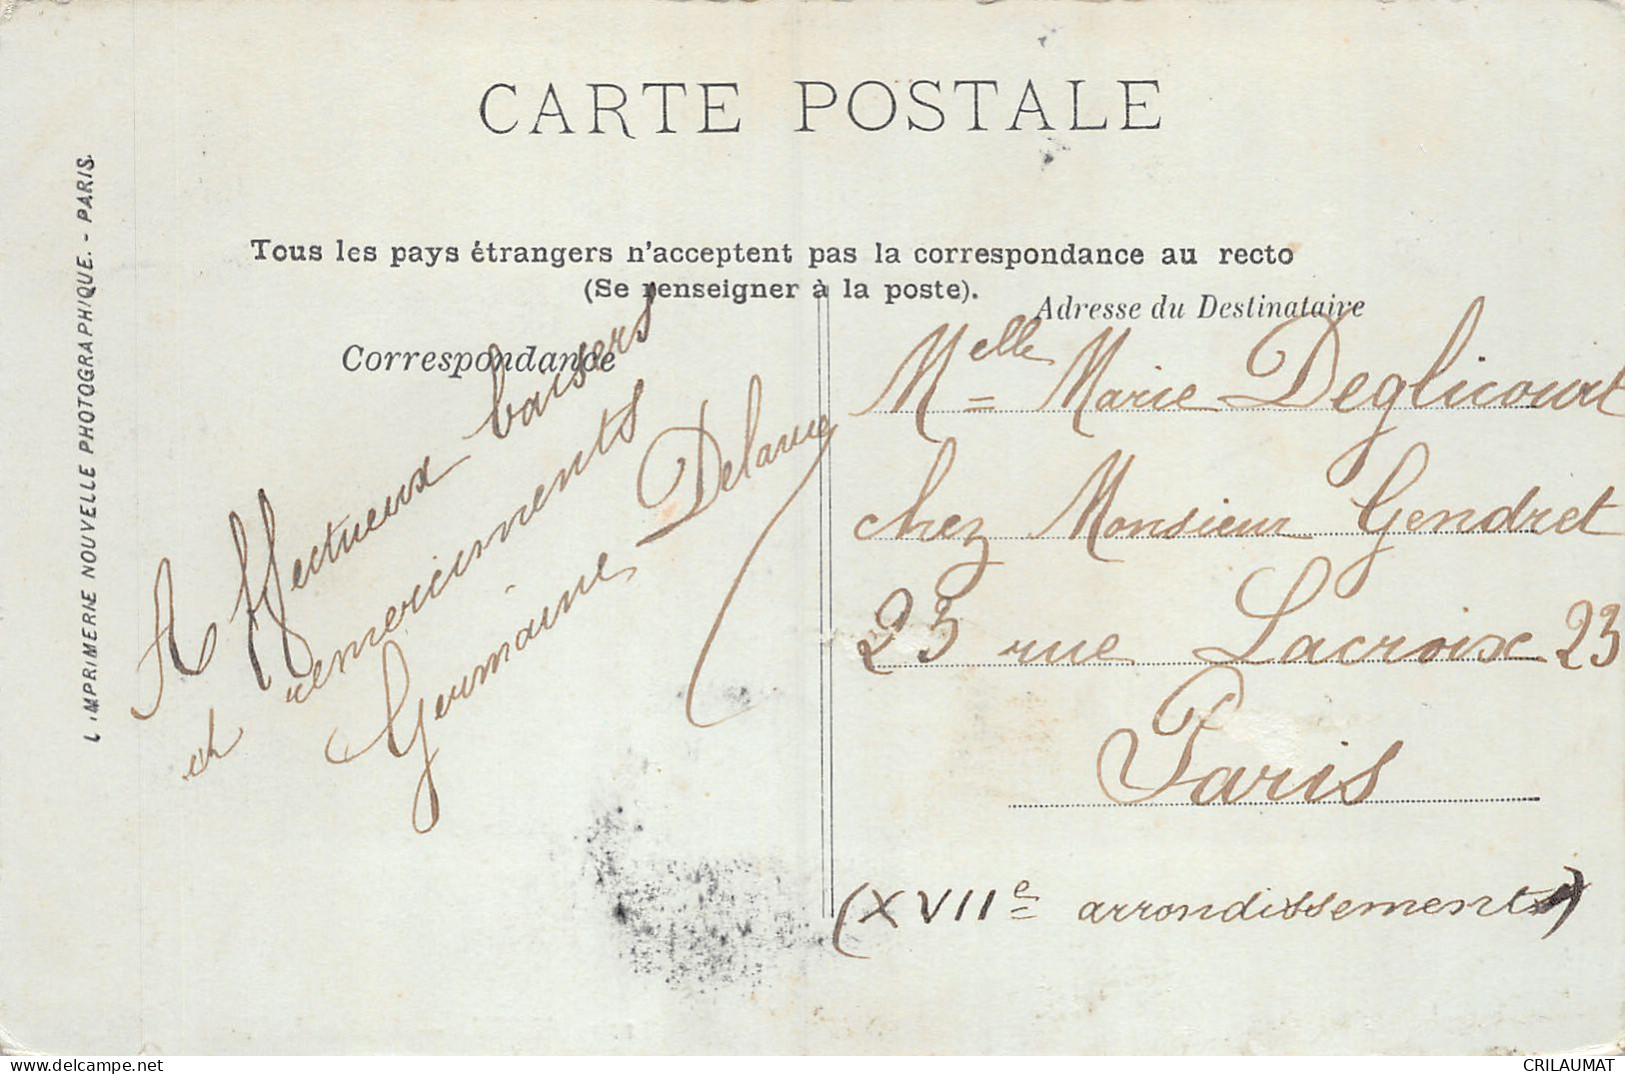 CARTE POSTALE
Tous les pays étrangers n'acceptent pas la correspondance au recto
(Se renseigner à la poste).
Correspondance
Affectueux baisers
et remerciements
Germaine Delarue
Adresse du Destinataire
Melle Marie Deglicourt
chez Monsieur Gendret
23 rue Lacroix 23
Paris
(XVIIe arrondissement)
IMPRIMERIE NOUVELLE PHOTOGRAPHIQUE. - PARIS.
delcampe.net
CRILAUMAT